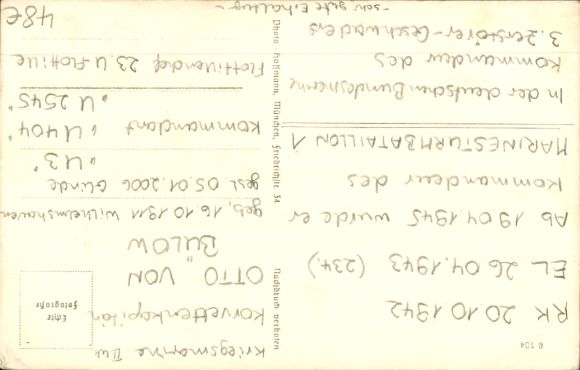 R 104
RK 20 10 1942
EL 26 04. 1943 (234.)
Ab 19 04 1945 wurde er
Kommandeur des
MARINESTURMBATAILLON 1
In der deutschen Bundesmarine
Kommandeur des
3. Zerstörer-Geschwaders
Nachdruck verboten
Photo Hoffmann, München, Friedrichstr. 34
Kriegsmarine
Korvettenkapitän
OTTO VON
BÜLOW
Echte
Fotografie
geb. 16 10 1911 Wilhelmshaven
gest. 05. 01. 2006 Glinde
"U 3"
Kommandant "U 404"
"U 2545"
Flottillenchef 23. U-Flottille
48€
- sehr gute Erhaltung -